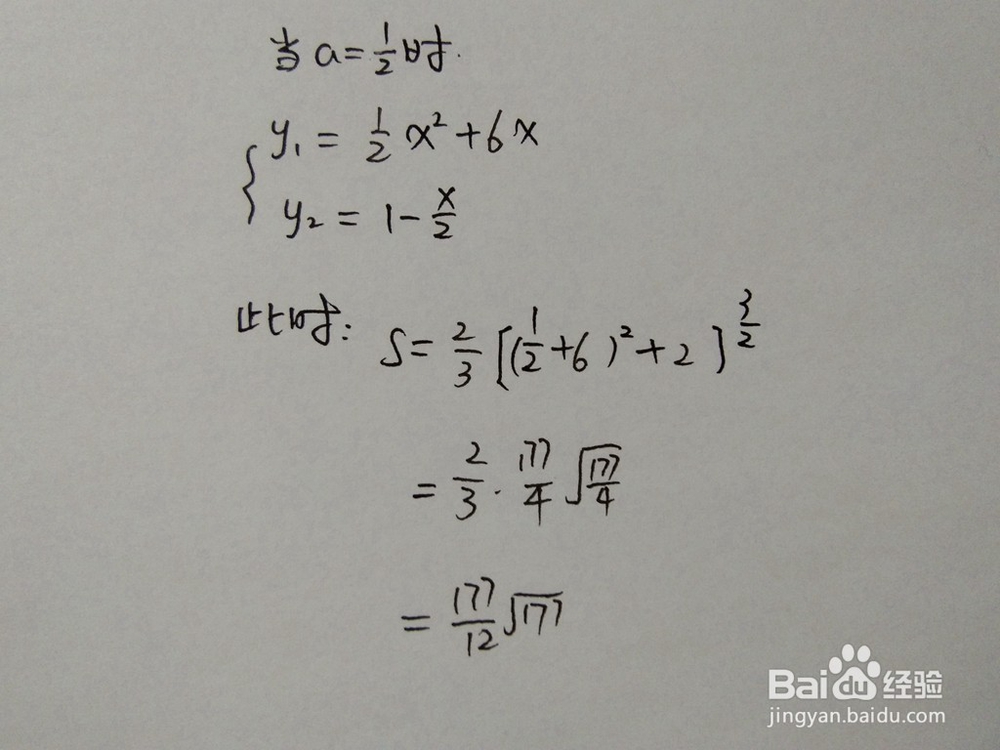 当 a=1/2时.
y₁ = 1/2 x² + 6x
y₂ = 1 - x/2
此时: S = 2/3 [(1/2+6)² + 2]^(3/2)
= 2/3 · 177/4 √(177/4)
= 177/12 √177
Baidu经验
jingyan.baidu.com